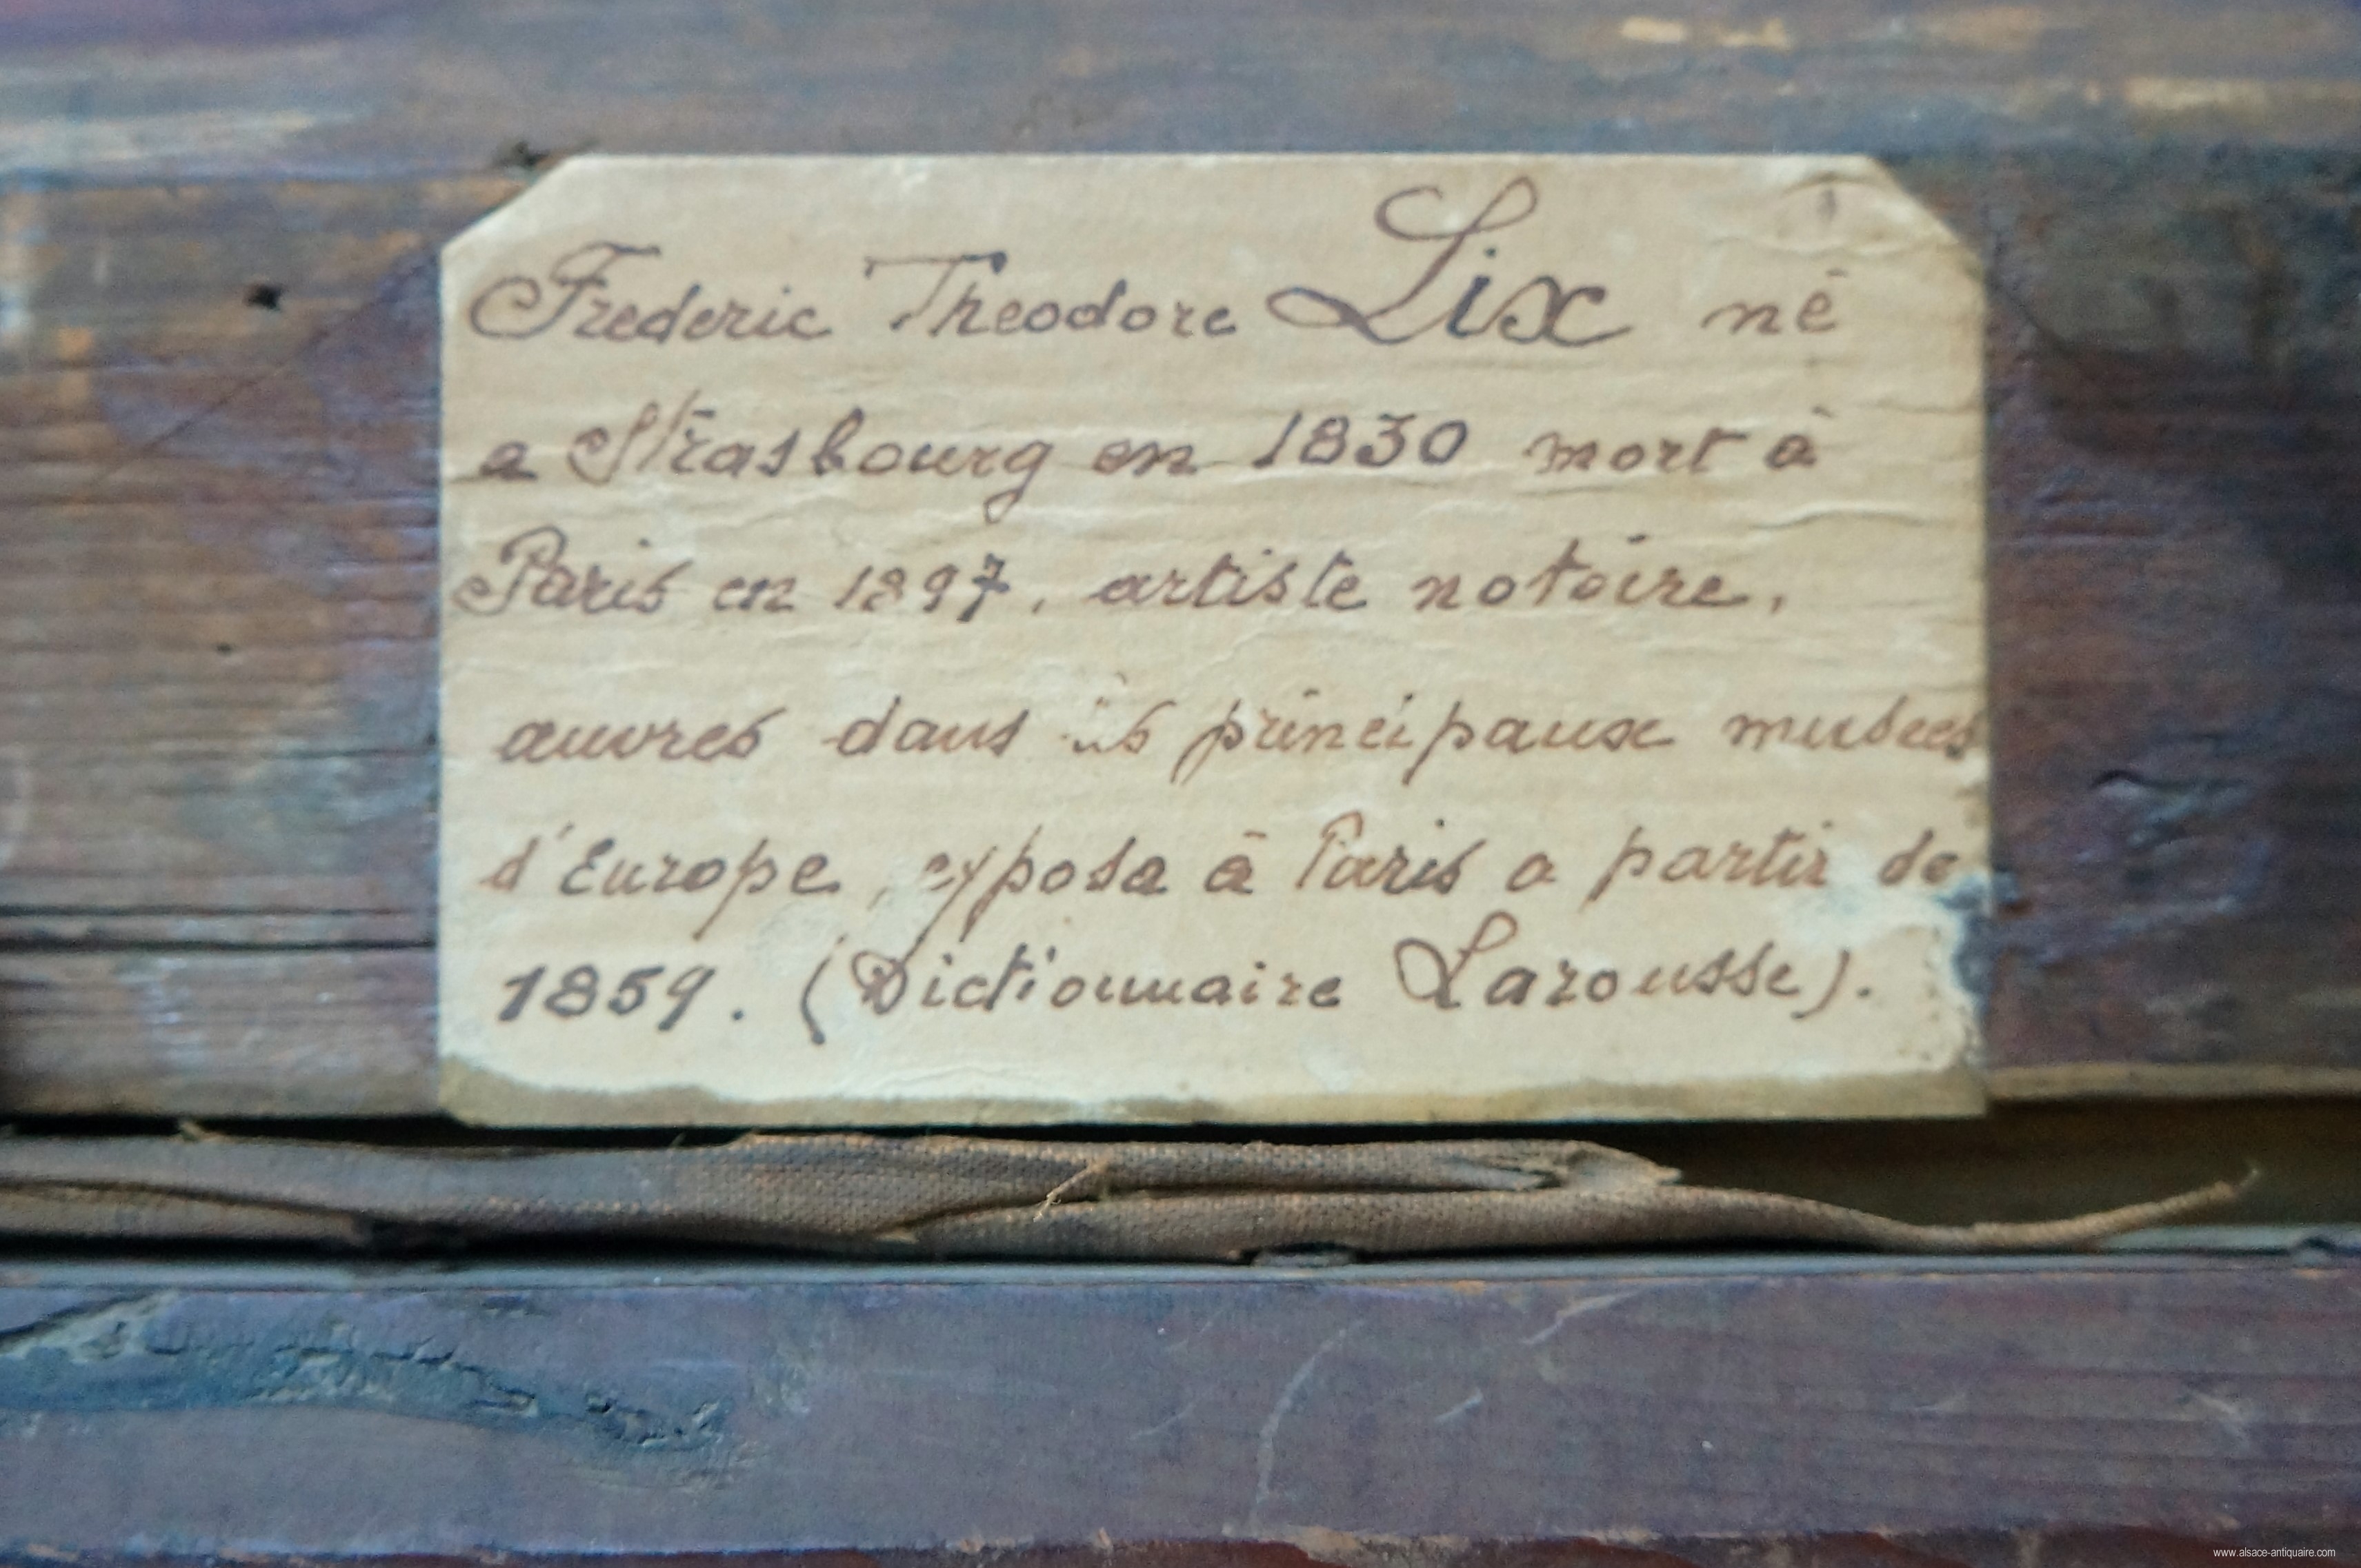 Frederic Theodore Lix né
a Strasbourg en 1830 mort à
Paris en 1897, artiste notoire,
œuvres dans les principaux musées
d'Europe, exposa à Paris a partir de
1859. (Dictionnaire Larousse).
www.alsace-antiquaire.com